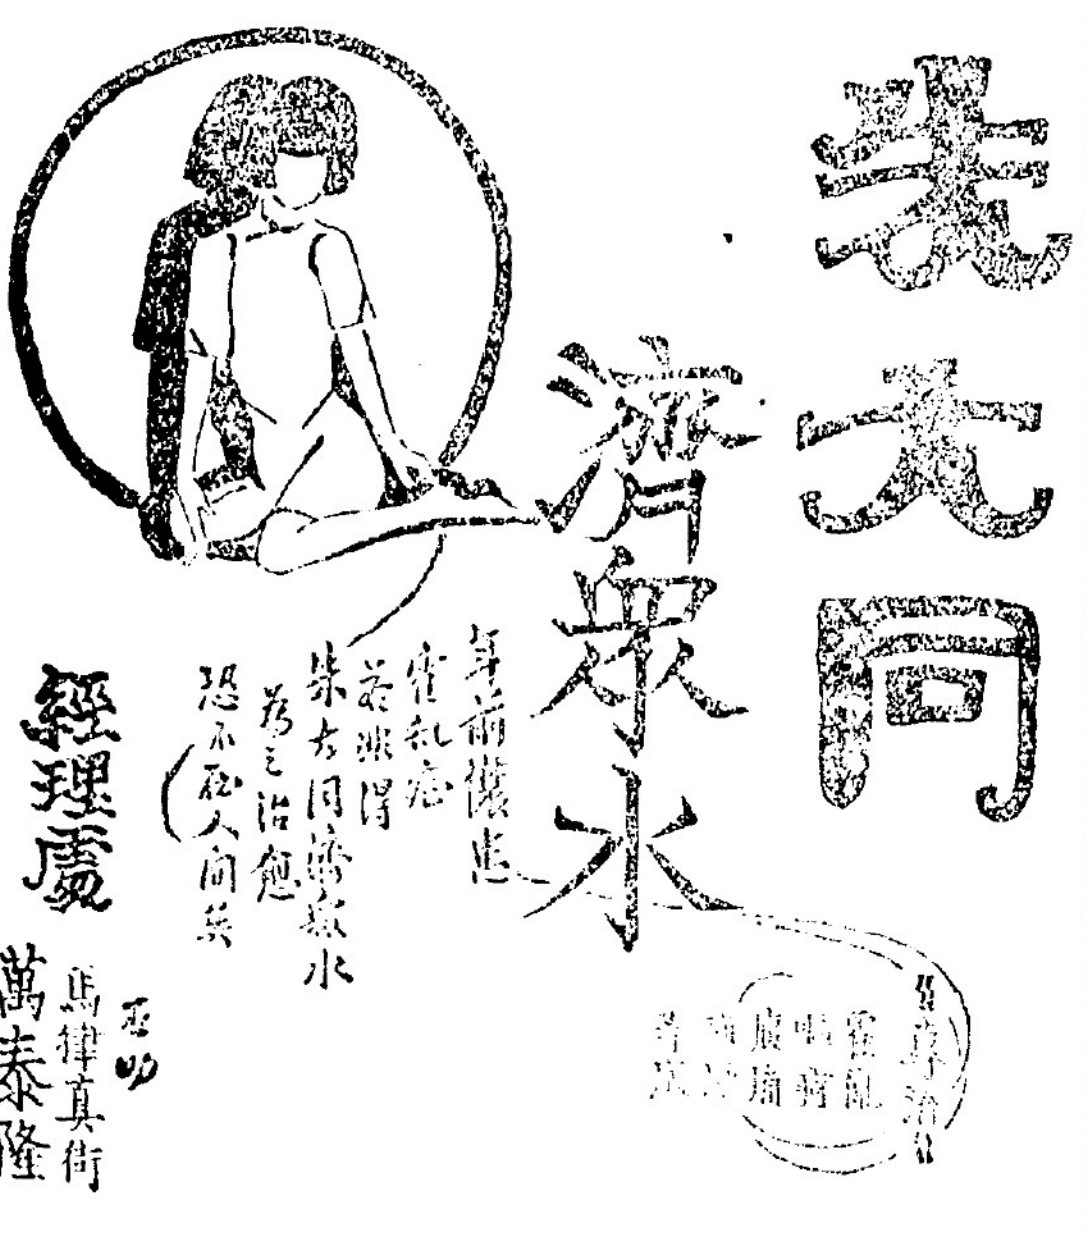 朱大同
濟眾水
年前儂患
霍乱症
若非得
朱大同濟眾水
為之治愈
恐不在人間矣
治
霍亂
經理處
馬律真街
萬泰隆